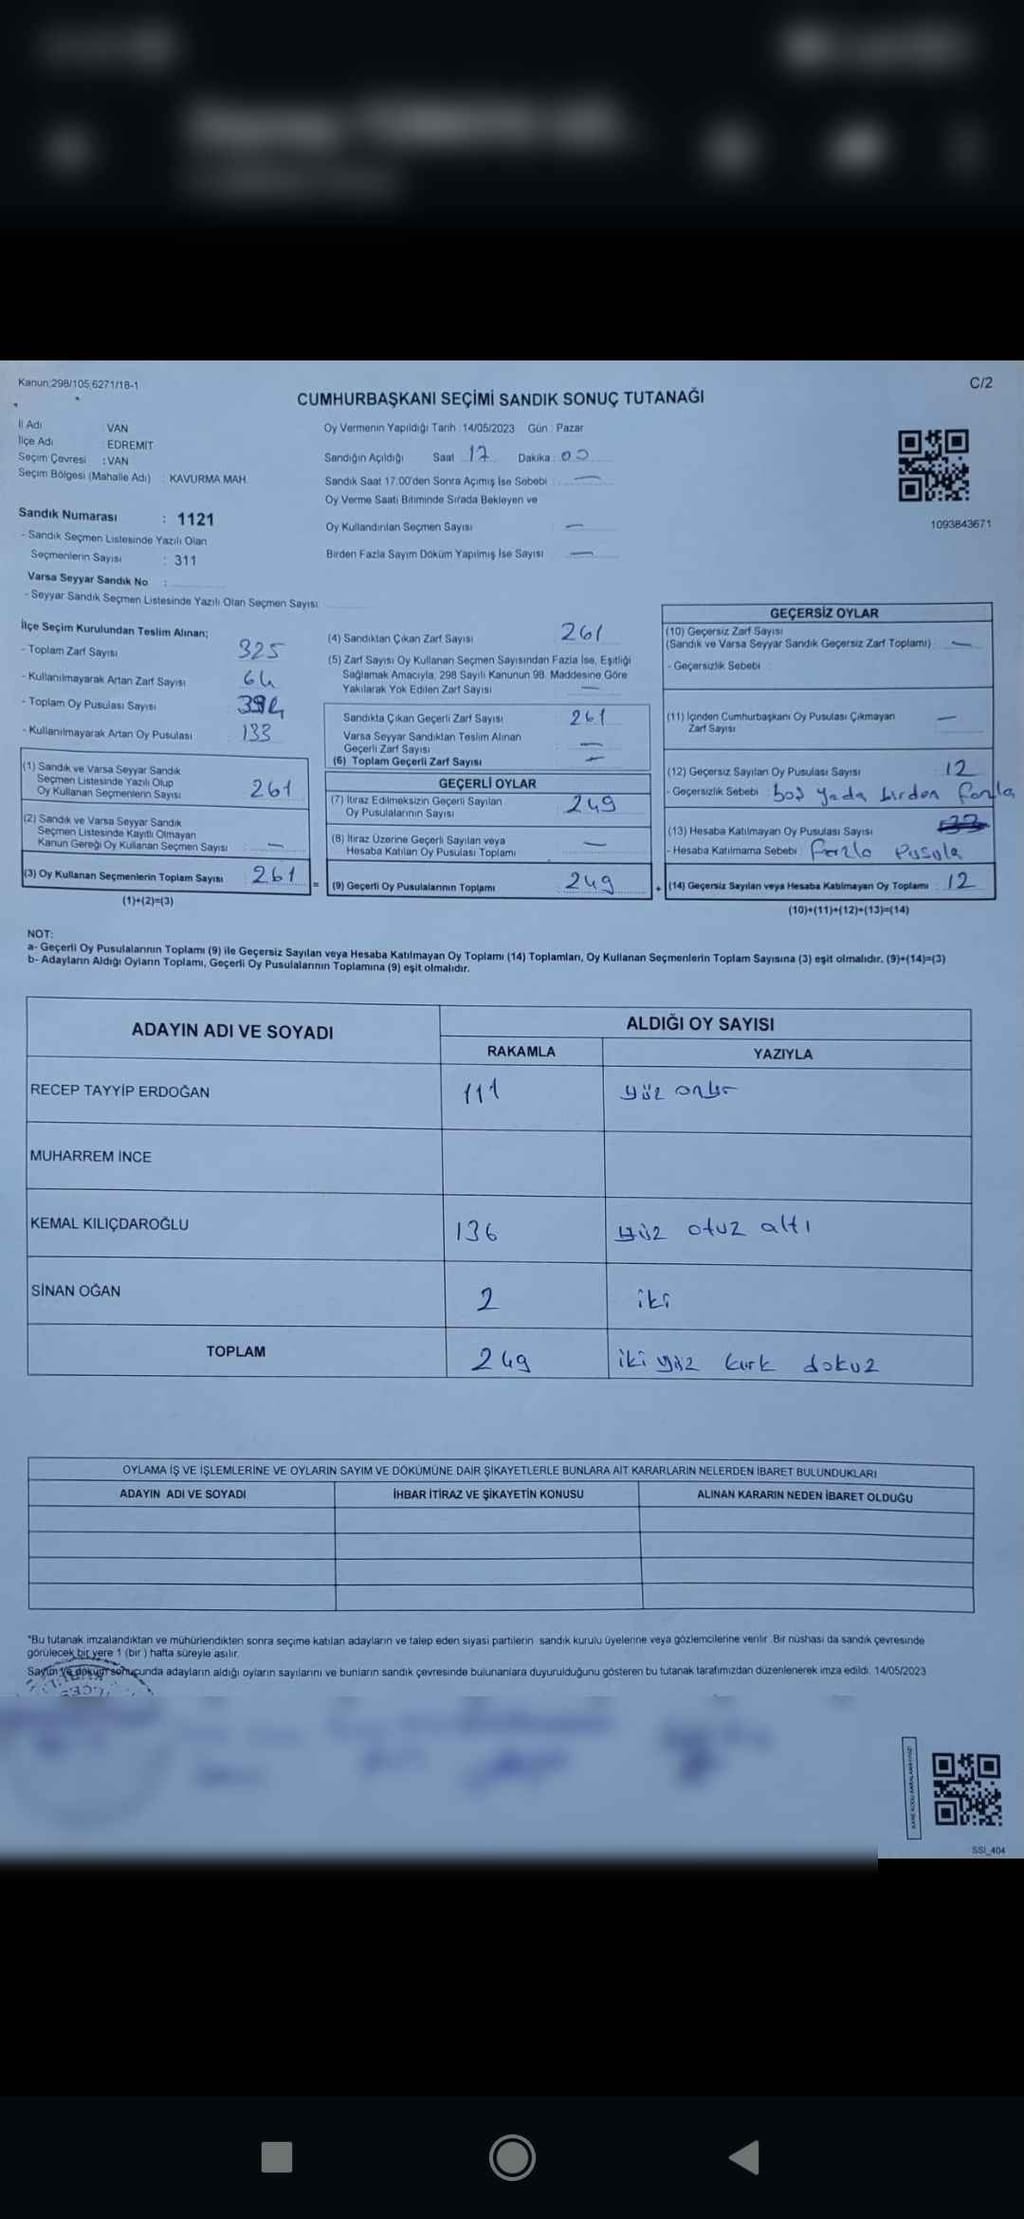 Kanun:298/105,6271/18-1
C/2
CUMHURBAŞKANI SEÇİMİ SANDIK SONUÇ TUTANAĞI
İl Adı : VAN
İlçe Adı : EDREMIT
Seçim Çevresi : VAN
Seçim Bölgesi (Mahalle Adı) : KAVURMA MAH.
Oy Vermenin Yapıldığı Tarih : 14/05/2023 Gün : Pazar
Sandığın Açıldığı Saat : 17 Dakika : 00
Sandık Saat 17.00'den Sonra Açımış İse Sebebi : —
Oy Verme Saati Bitiminde Sırada Bekleyen ve
Oy Kullandırılan Seçmen Sayısı : —
Birden Fazla Sayım Döküm Yapılmış İse Sayısı : —
1093843671
Sandık Numarası : 1121
- Sandık Seçmen Listesinde Yazılı Olan
Seçmenlerin Sayısı : 311
Varsa Seyyar Sandık No :
- Seyyar Sandık Seçmen Listesinde Yazılı Olan Seçmen Sayısı
İlçe Seçim Kurulundan Teslim Alınan;
- Toplam Zarf Sayısı 325
- Kullanılmayarak Artan Zarf Sayısı 64
- Toplam Oy Pusulası Sayısı 394
- Kullanılmayarak Artan Oy Pusulası 133
(1) Sandık ve Varsa Seyyar Sandık
Seçmen Listesinde Yazılı Olup
Oy Kullanan Seçmenlerin Sayısı 261
(2) Sandık ve Varsa Seyyar Sandık
Seçmen Listesinde Kayıtlı Olmayan
Kanun Gereği Oy Kullanan Seçmen Sayısı —
(3) Oy Kullanan Seçmenlerin Toplam Sayısı 261
(1)+(2)=(3)
(4) Sandıktan Çıkan Zarf Sayısı 261
(5) Zarf Sayısı Oy Kullanan Seçmen Sayısından Fazla İse, Eşitliği
Sağlamak Amacıyla, 298 Sayılı Kanunun 98. Maddesine Göre
Yakılarak Yok Edilen Zarf Sayısı —
Sandıkta Çıkan Geçerli Zarf Sayısı 261
Varsa Seyyar Sandıktan Teslim Alınan
Geçerli Zarf Sayısı —
(6) Toplam Geçerli Zarf Sayısı —
GEÇERLİ OYLAR
(7) İtiraz Edilmeksizin Geçerli Sayılan
Oy Pusulalarının Sayısı 249
(8) İtiraz Üzerine Geçerli Sayılan veya
Hesaba Katılan Oy Pusulası Toplamı —
= (9) Geçerli Oy Pusulalarının Toplamı 249
GEÇERSİZ OYLAR
(10) Geçersiz Zarf Sayısı
(Sandık ve Varsa Seyyar Sandık Geçersiz Zarf Toplamı) —
- Geçersizlik Sebebi
(11) İçinden Cumhurbaşkanı Oy Pusulası Çıkmayan
Zarf Sayısı —
(12) Geçersiz Sayılan Oy Pusulası Sayısı 12
- Geçersizlik Sebebi boş yada birden fazla
(13) Hesaba Katılmayan Oy Pusulası Sayısı
- Hesaba Katılmama Sebebi : Fazla Pusula
+ (14) Geçersiz Sayılan veya Hesaba Katılmayan Oy Toplamı : 12
(10)+(11)+(12)+(13)=(14)
NOT:
a- Geçerli Oy Pusulalarının Toplamı (9) ile Geçersiz Sayılan veya Hesaba Katılmayan Oy Toplamı (14) Toplamları, Oy Kullanan Seçmenlerin Toplam Sayısına (3) eşit olmalıdır. (9)+(14)=(3)
b- Adayların Aldığı Oyların Toplamı, Geçerli Oy Pusulalarının Toplamına (9) eşit olmalıdır.
ADAYIN ADI VE SOYADI
ALDIĞI OY SAYISI
RAKAMLA YAZIYLA
RECEP TAYYİP ERDOĞAN 111 yüz onbir
MUHARREM İNCE
KEMAL KILIÇDAROĞLU 136 yüz otuz altı
SİNAN OĞAN 2 iki
TOPLAM 249 iki yüz kırk dokuz
OYLAMA İŞ VE İŞLEMLERİNE VE OYLARIN SAYIM VE DÖKÜMÜNE DAİR ŞİKAYETLERLE BUNLARA AİT KARARLARIN NELERDEN İBARET BULUNDUKLARI
ADAYIN ADI VE SOYADI İHBAR İTİRAZ VE ŞİKAYETİN KONUSU ALINAN KARARIN NEDEN İBARET OLDUĞU
*Bu tutanak imzalandıktan ve mühürlendikten sonra seçime katılan adayların ve talep eden siyasi partilerin sandık kurulu üyelerine veya gözlemcilerine verilir. Bir nüshası da sandık çevresinde
görülecek bir yere 1 (bir ) hafta süreyle asılır.
Sayım ve döküm sonucunda adayların aldığı oyların sayılarını ve bunların sandık çevresinde bulunanlara duyurulduğunu gösteren bu tutanak tarafımızdan düzenlenerek imza edildi. 14/05/2023
SSI_404